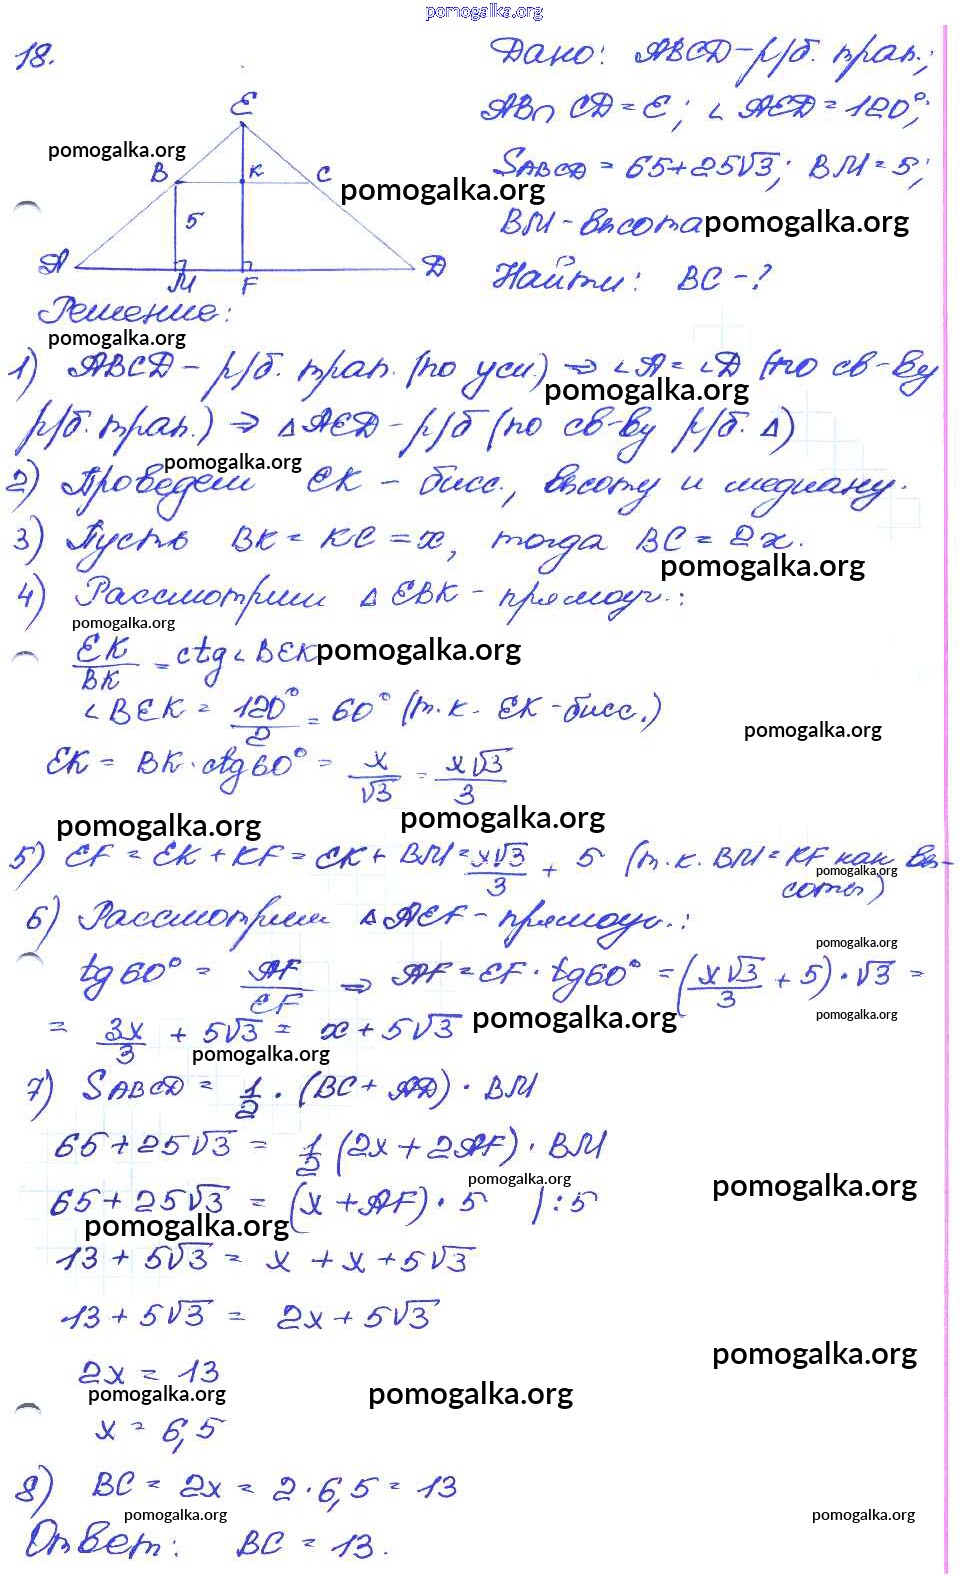 pomogalka.org
18.
Дано: ABCD - р/б. трап.;
AB ∩ CD = E; ∠ AED = 120°;
S ABCD = 65+25√3; BM = 5;
BM - высота
Найти: BC - ?
E
B K C
5
A M F D
pomogalka.org
pomogalka.org
pomogalka.org
Решение:
pomogalka.org
1) ABCD - р/б. трап. (по усл.) ⇒ ∠A = ∠D (по св-ву
pomogalka.org
р/б. трап.) ⇒ △ AED - р/б (по св-ву р/б. △)
pomogalka.org
2) Проведем EK - бисс., высоту и медиану.
3) Пусть BK = KC = x, тогда BC = 2x.
pomogalka.org
4) Рассмотрим △ EBK - прямоуг.:
pomogalka.org
EK/BK = ctg ∠ BEK
pomogalka.org
∠ BEK = 120°/2 = 60° (т.к. EK - бисс.)
pomogalka.org
EK = BK · ctg 60° = x/√3 = x√3/3
pomogalka.org
pomogalka.org
5) EF = EK + KF = EK + BM = x√3/3 + 5 (т.к. BM = KF как вы-
pomogalka.org
соты)
6) Рассмотрим △ AEF - прямоуг.:
pomogalka.org
tg 60° = AF/EF ⇒ AF = EF · tg 60° = (x√3/3 + 5) · √3 =
pomogalka.org
pomogalka.org
= 3x/3 + 5√3 = x + 5√3
pomogalka.org
7) S ABCD = 1/2 · (BC + AD) · BM
65 + 25√3 = 1/2 (2x + 2AF) · BM
pomogalka.org
pomogalka.org
65 + 25√3 = (x + AF) · 5 | : 5
pomogalka.org
13 + 5√3 = x + x + 5√3
13 + 5√3 = 2x + 5√3
pomogalka.org
2x = 13
pomogalka.org
pomogalka.org
x = 6,5
8) BC = 2x = 2 · 6,5 = 13
pomogalka.org
pomogalka.org
Ответ: BC = 13.